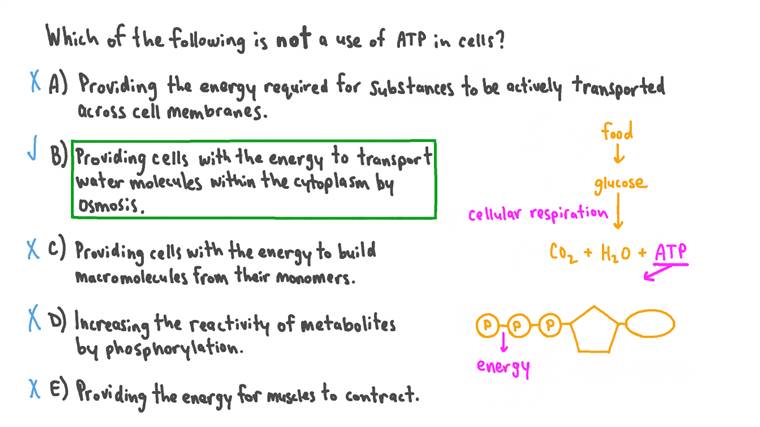 Which of the following is not a use of ATP in cells?
X A) Providing the energy required for substances to be actively transported
across cell membranes.
✓ B) Providing cells with the energy to transport
water molecules within the cytoplasm by
osmosis.
X C) Providing cells with the energy to build
macromolecules from their monomers.
X D) Increasing the reactivity of metabolites
by phosphorylation.
X E) Providing the energy for muscles to contract.
food
glucose
cellular respiration
CO₂ + H₂O + ATP
P P P
energy